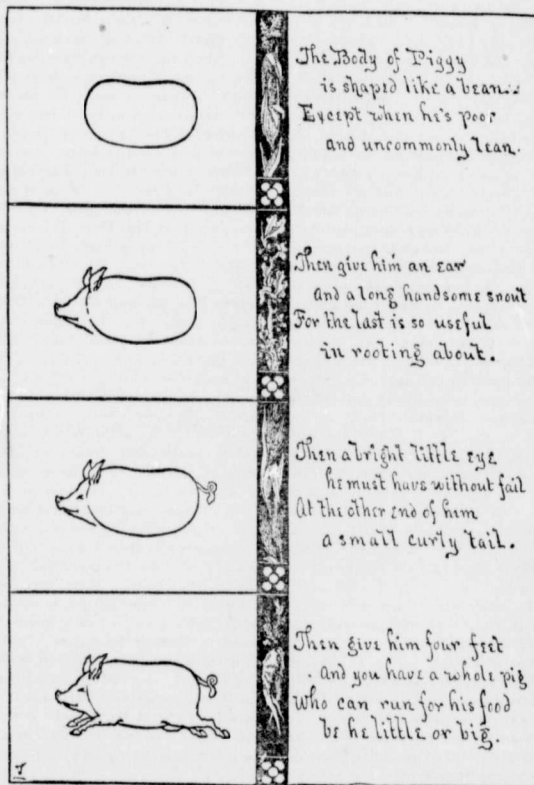 The Body of Piggy
is shaped like a bean..
Except when he's poor
and uncommonly lean.
Then give him an ear
and a long handsome snout
For the last is so useful
in rooting about.
Then a bright little eye
he must have without fail
At the other end of him
a small curly tail.
Then give him four feet
And you have a whole pig
Who can run for his food
be he little or big.